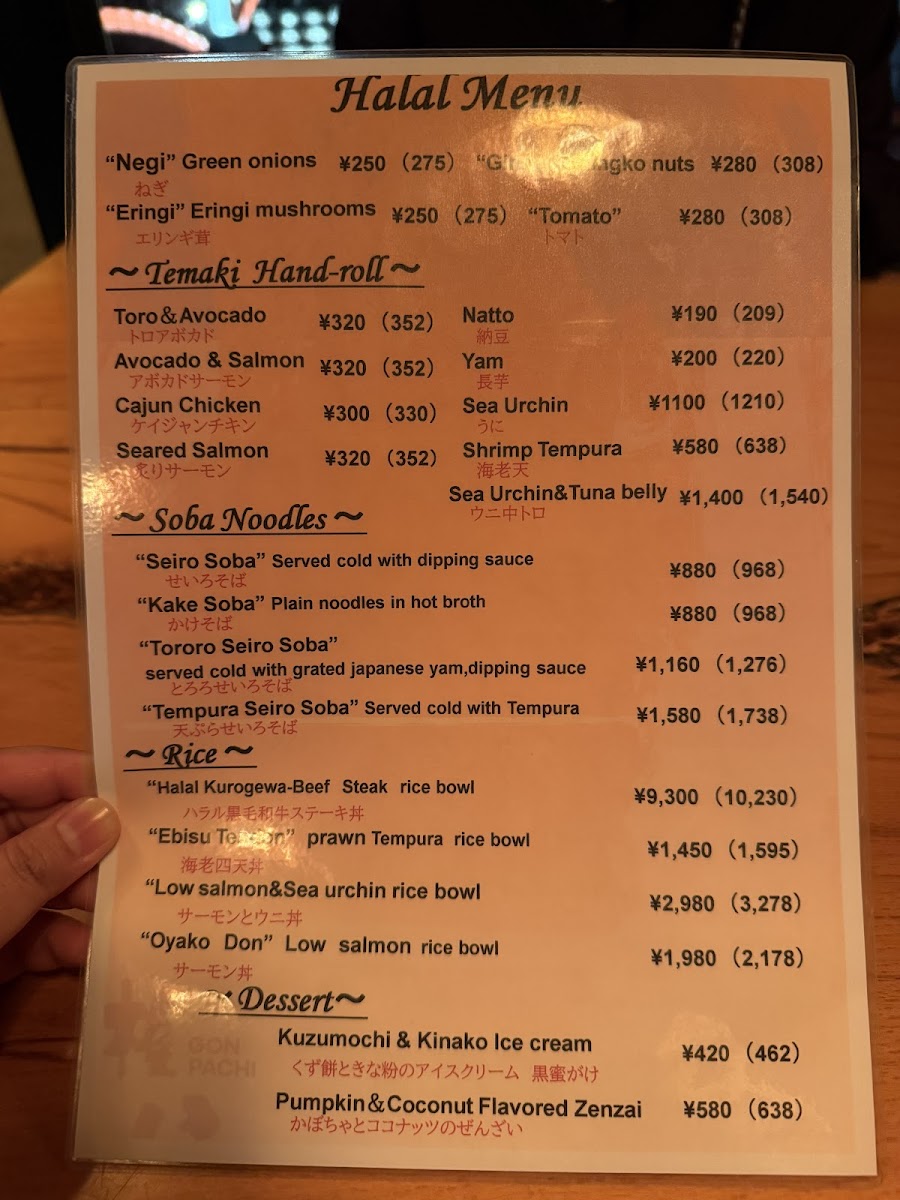 Halal Menu
“Negi” Green onions ¥250 （275） nuts ¥280 （308）
ねぎ
“Eringi” Eringi mushrooms ¥250 （275） “Tomato” ¥280 （308）
エリンギ茸 トマト
～Temaki Hand-roll～
Toro＆Avocado ¥320 （352） Natto ¥190 （209）
トロアボカド 納豆
Avocado & Salmon ¥320 （352） Yam ¥200 （220）
アボカドサーモン 長芋
Cajun Chicken ¥300 （330） Sea Urchin ¥1100 （1210）
ケイジャンチキン うに
Seared Salmon ¥320 （352） Shrimp Tempura ¥580 （638）
炙りサーモン 海老天
Sea Urchin&Tuna belly ¥1,400 （1,540）
ウニ中トロ
～Soba Noodles～
“Seiro Soba” Served cold with dipping sauce ¥880 （968）
せいろそば
“Kake Soba” Plain noodles in hot broth ¥880 （968）
かけそば
“Tororo Seiro Soba”
served cold with grated japanese yam,dipping sauce ¥1,160 （1,276）
とろろせいろそば
“Tempura Seiro Soba” Served cold with Tempura ¥1,580 （1,738）
天ぷらせいろそば
～Rice～
“Halal Kurogewa-Beef Steak rice bowl ¥9,300 （10,230）
ハラル黒毛和牛ステーキ丼
“Ebisu prawn Tempura rice bowl ¥1,450 （1,595）
海老四天丼
“Low salmon&Sea urchin rice bowl ¥2,980 （3,278）
サーモンとウニ丼
“Oyako Don” Low salmon rice bowl ¥1,980 （2,178）
サーモン丼
Dessert～
Kuzumochi & Kinako Ice cream ¥420 （462）
くず餅ときな粉のアイスクリーム 黒蜜がけ
Pumpkin＆Coconut Flavored Zenzai ¥580 （638）
かぼちゃとココナッツのぜんざい
GON
PACHI